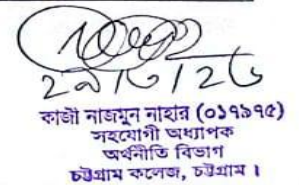 কাজী নাজমুন নাহার (০১৭৯৭৫)
সহযোগী অধ্যাপক
অর্থনীতি বিভাগ
চট্টগ্রাম কলেজ, চট্টগ্রাম।